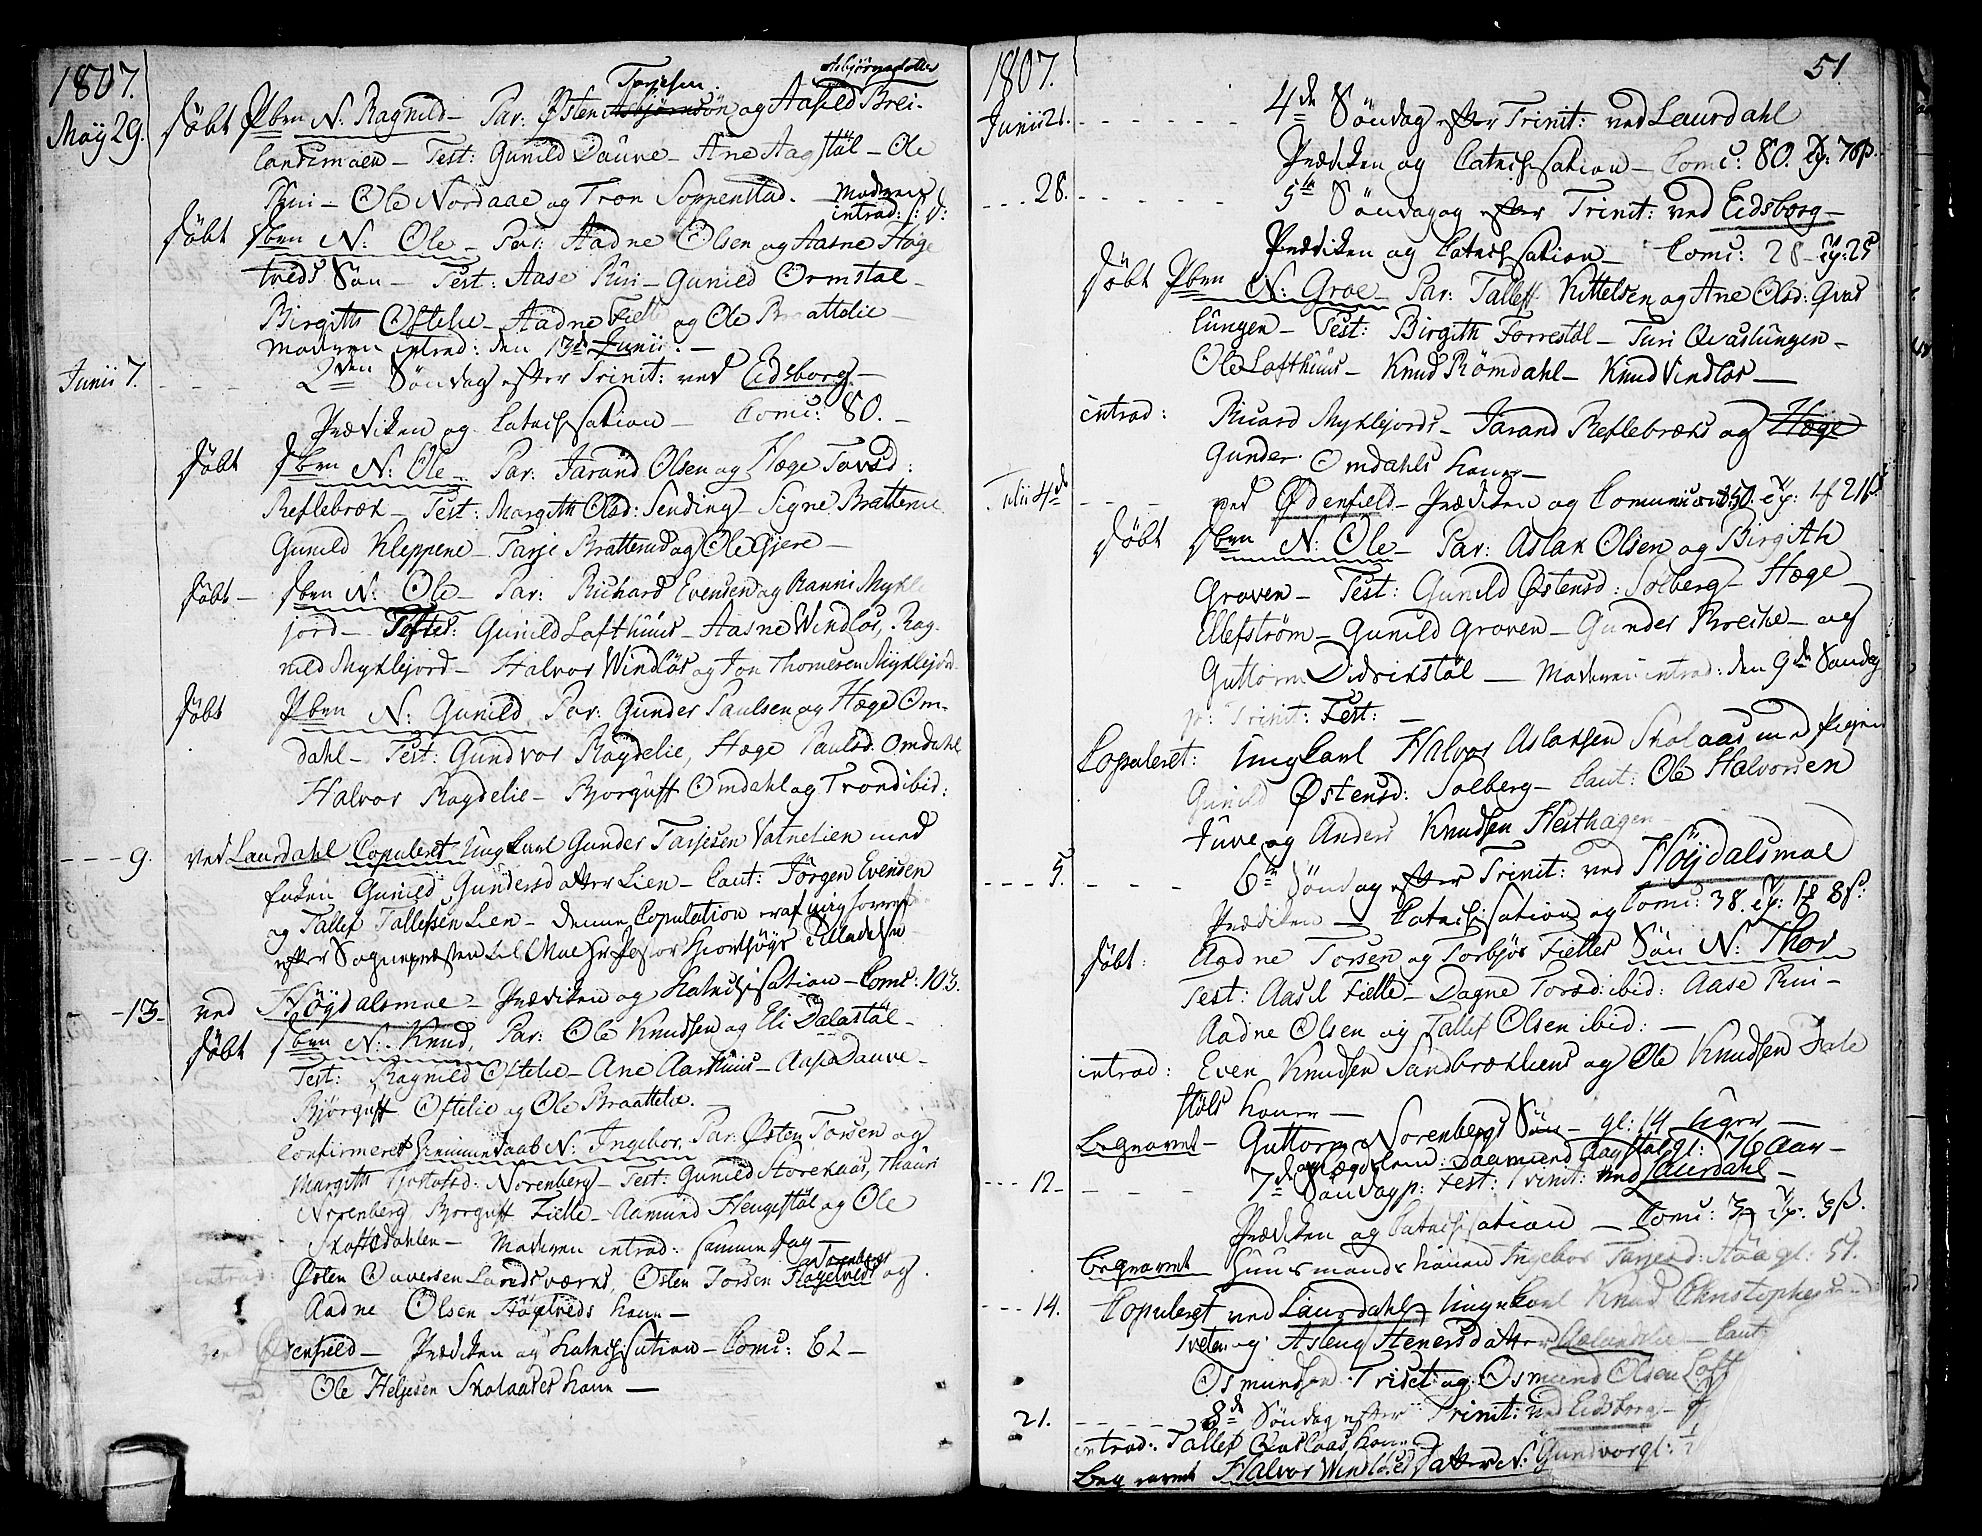 1807.
May 29. Døbt Pbrn N: Ragnild - Par: Østen Asbjørnsøn Tarjesen og Aasild Asbjørnsdatter Brei-
landsmoen - Test: Gunild Dauve - Ane Aagstøl - Ole
Rui - Ole Nordaae og Tron Soppenstad. - Moderen
intrad: s: d:
Døbt Dbrn N: Ole - Par: Aadne Olsen og Aasne Høge
tveds Søn - Test: Aase Rui - Gunild Ormstøl -
Birgith Oftelie - Aadne Fielle og Ole Braattelie -
Moderen intrad: den 13de Junii. -
Junii 7. - - - 2den Søndag efter Trinit: ved Eidsborg -
Prædiken og Catechisation - Comu: 80. -
Døbt Dbrn N: Ole - Par: Jarand Olsen og Hæge Tovsd:
Reflebræk - Test: Margith Olsd: Sending - Signe Bratterud
Gunild Kleppene - Tarje Bratterud og Ole Gjere -
Døbt - Dbrn N: Ole - Par: Richard Evensen og Ranni Mykle
jord - Testes: Gunild Lofthuus - Aasne Windlos, Rag-
nild Myklejord - Halvor Windlos og Jon Thomesen Myklejord
Døbt Pbrn N: Gunild Par: Gunder Paulsen og Hæge Om-
dahl - Test: Gundvor Røydelie, Hæge Paulsd. Omdahl
Halvor Røydelie - Bjorguff Omdahl og Trond ibid:
- - - 9. ved Laurdahl Copuleret Ungkarl Gunder Tarjesen Vatnelien med
Enken Gunild Gundersdatter Lien - Caut: Jørgen Evensen
og Tallef Tallefsen Lien - Denne Copulation er af mig forrettet
efter Sognepræsten til Moe Hr Pastor Hjorthøys Tilladelse
- - 13 - ved Høydalsmoe - Prædiken og Katechisation - Comu: 103.
Døbt Dbrn N: Knud, Par: Ole Knudsen og Eli Dalastøl -
Test: Ragnild Oftelie - Ane Aarhuus - Aase Dauve -
Bjørguff Oftelie og Ole Braattelie. -
Confirmeret Hiemmedaab N: Ingebor Par: Østen Torsen og
Margith Tjostofsd: Norenberg - Test: Gunild Storekaas, Thaari
Norenberg Bjorguff Fielle - Aamund Heugestøl og Ole
Skoftedahlen - Moderen intrad: samme Dag -
intrad: Østen Oaversen Landsværks, Østen Torsen Høgetveds Norenbergs og
Aadne Olsen Høgetveds Kone -
ved Ødenfield - Prædiken og Katechisation - Comu: 62 -
Ole Heljesen Skolaases Kone -
1807. 51
Junii 21. - - - - - - 4de Søndag efter Trinit: ved Laurdahl
Prædiken og Catechisation - Comu: 80. Ex: 70ß.
- - - 28. - - - - - - 5te Søndagag efter Trinit: ved Eidsborg -
Prædiken og Catechisation - Comu: 28 - Ex: 25
Døbt Pbrn N: Groe - Par: Tallef Kittelsen og Ane Olsd: Qvas
lungen - Test: Birgith Forrestøl - Turi Qvaslungen -
Ole Lofthuus - Knud Rømdahl - Knud Vindlos -
intrad: Ricard Myklejords - Jarand Reflebræks og Hæge
Gunder Omdahls Koner -
Julii 4de - - - ved Ødenfield - Prædiken og Comunion: 50. Ex: 1f 21ß
Døbt Dbrn N: Ole - Par: Aslak Olsen og Birgith
Groven - Test: Gunild Østensd: Solberg - Hæge
Ellefstrøm - Gunild Groven - Gunder Breike - og
Guttorm Didrikstøl - Moderen intrad: den 9de Søndag
p: Trinit: Fest: -
Copuleret: Ungkarl Halvor Aslaksen Skolaas med Pigen
Gunild Østensd: Solberg - Caut: Ole Halvorsen
Juve og Anders Knudsen Hesthagen
- - - 5. - - - - 6te Søndag efter Trinit: ved Høydalsmoe
Prædiken - Catechisation og Comu: 38. Ex: 1f 8ß:
Døbt: Aadne Torsen og Torbjør Fielles Søn N: Thor
Test: Aasil Fielle - Dagne Torsd: ibid: Aase Rui -
Aadne Olsen og Tallef Olsen ibid: -
intrad: Even Knudsen Sandbrækkens og Ole Knudsen Dale
støls Koner -
Begravet - Guttorm Norenbergs Søn - gl: 14 Uger -
og Lægdslem: Daamund Aagstøl gl: 76 Aar -
- - - 12 - - - - 7de Søndag p: Fest: Trinit: ved Laurdahl -
Prædiken og Catechisation - Comu: 3 Ex: 3ß.
Begravet Huusmands Konen Ingebor Tarjesd: Støa gl: 59.
- - - 14. Copuleret ved Laurdahl Ungekarl Knud Christophersen
Tveten og Aslaug Stenersdatter Aalandslie - Caut:
Osmund Trisæt og Osmund Olsen Loft
21. - - - - 8de Søndag efter Trinit: ved Eidsborg -
intrad: Tallef Qvaslaas Kone
Begravet Halvor Windloses Datter N: Gundvor gl: